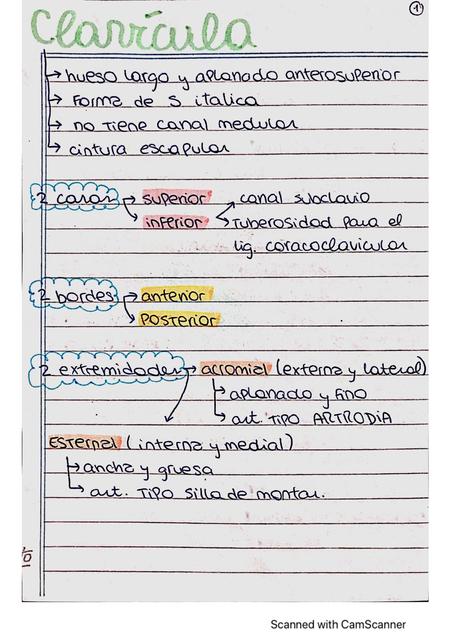 1
Clavícula
→ hueso largo y aplanado anterosuperior
→ Forma de S italica
→ no Tiene canal medular
→ cintura escapular
2 caras → superior
→ inferior → canal subclavio
→ Tuberosidad para el
lig. coracoclavicular
2 bordes → anterior
→ Posterior
2 extremidades → acromial (externa y lateral)
→ aplanado y fino
→ art. TIPO ARTRODIA
ESTernal (interna y medial)
→ ancha y gruesa
→ art. TIPO silla de montar.
Scanned with CamScanner